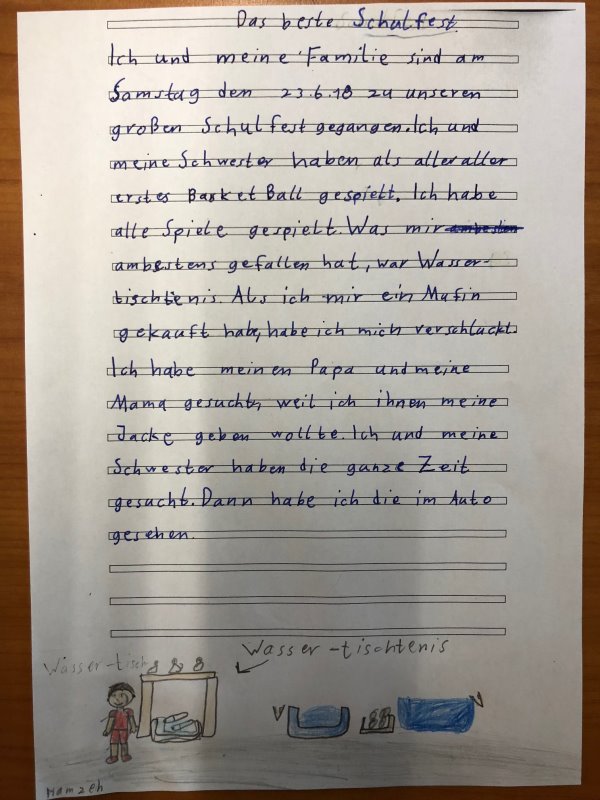 Das beste Schulfest
Ich und meine Familie sind am
Samstag den 23.6.18 zu unseren
großen Schulfest gegangen. Ich und
meine Schwester haben als aller aller
erstes Basket Ball gespielt. Ich habe
alle Spiele gespielt. Was mir
ambestens gefallen hat, war Wasser-
tischtenis. Als ich mir ein Mufin
gekauft habe, habe ich mich verschluckt.
Ich habe meinen Papa und meine
Mama gesucht, weil ich ihnen meine
Jacke geben wollte. Ich und meine
Schwester haben die ganze Zeit
gesucht. Dann habe ich die im Auto
gesehen.
Wasser-tisch
Wasser-tischtenis
Hamzeh